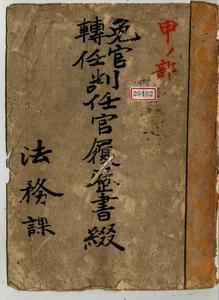 甲ノ部
免官
轉任
判任官履歴書綴
20402
法務課